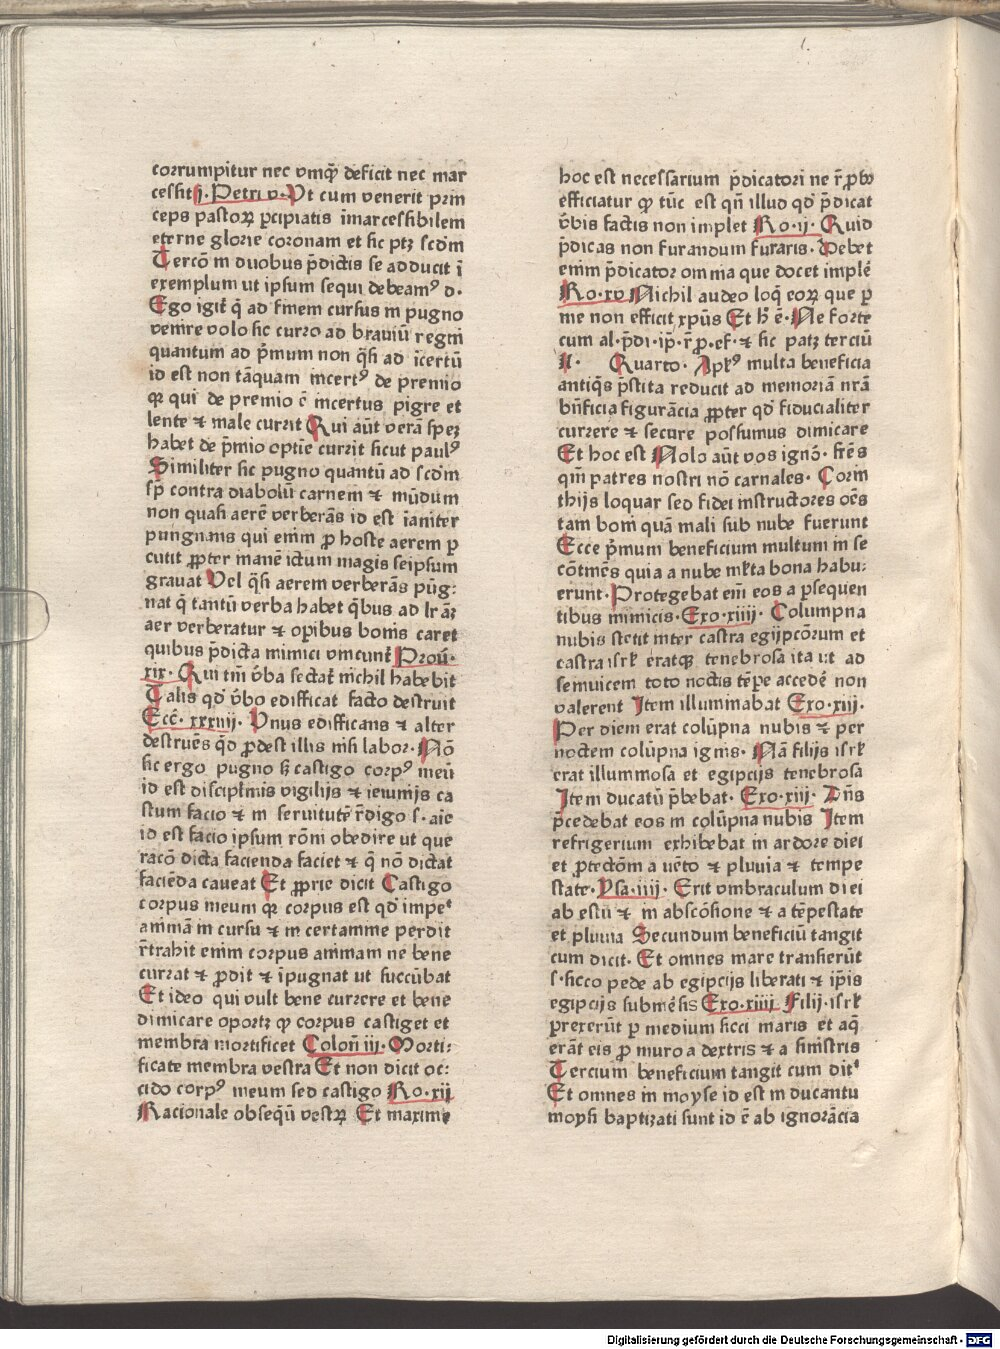 corrumpitur nec vmꝙ̃ deficit nec mar
cessit j. Petri v. Vt cum venerit prin
ceps pastoꝝ ꝑcipiatis īmarcessibilem
eterne glorie coronam et sic ptꝫ scd̄m
Tercō m duobus p̄dictis se adducit ī
exemplum ut ipsum sequi debeamꝰ d.
Ego igit̄ q̄ ad finem cursus in pugno
venire volo sic curro ad brauiū regni
quantum ad p̄mum non q̄si ad īcertū
id est non tāquam incertꝰ de premio
qꝛ qui de premio ē incertus pigre et
lente ⁊ male currit Qui aūt verā speꝫ
habet de p̄mio optīe currit sicut paulꝰ
Similiter sic pugno quantū ad scd̄m
sꝑ contra diabolū carnem ⁊ mūdum
non quasi aerē verberās id est īaniter
pungnans qui enim ꝓ hoste aerem ꝑ
cutit ꝓpter manē ictum magis seipsum
grauat Vel q̄si aerem verberās pūg:
nat q̄ tantū verba habet q̄bus ad lr̄āꝫ
aer verberatur ⁊ oꝑibus bonis caret
quibus p̄dicta inimici vincunt̄ Prou̅.
xix. Qui tm̄ v̄ba sectat̄ nichil habebit
Talis qd̄ v̄bo edifficat facto destruit
Ecc̄. xxxiiij. Vnus edifficans ⁊ alter
destruēs q̄d ꝓdest illis nisi labor. Nō
sic ergo pugno sꝫ castigo corpꝰ meū
id est disciplinis vigilijs ⁊ ieiunijs ca
stum facio ⁊ in seruitutē r̄digo s. aīe
id est facio ipsum rōni obedire ut que
racō dicta facienda faciet ⁊ q̄ nō dictat
faciēda caueat Et ꝓprie dicit Castigo
corpus meum qꝛ corpus est qd̄ impeᵗ
animā in cursu ⁊ in certamine perdit
r̄trahit enim corpus animam ne bene
currat ⁊ ꝓdit ⁊ īpugnat ut succūbat
Et ideo qui vult bene currere et bene
dimicare oportꝫ ꝙ corpus castiget et
membra mortificet Colon̄ iij. Morti:
ficate membra vestra Et non dicit oc:
cido corpꝰ meum sed castigo Ro. xij
Racionale obseq̄ū vestꝝ Et maxime
hoc est necessarium p̄dicatori ne r̄ꝓbꝰ
efficiatur ꝙ tūc est qn̄ illud qd̄ p̄dicat
v̄bis factis non implet Ro. ij. Quid
p̄dicas non furandum furaris. Debet
enim p̄dicator omnia que docet implē
Ro. xv Nichil audeo loq̄ eoꝝ que ꝑ
me non efficit xp̄us Et h̄ ē. Ne forte
cum al. p̄di. ip̄. r̄ꝓ. ef. ⁊ sic patꝫ terciū
A. Quarto. Apl̄ꝰ multa beneficia
antiq̄s p̄stita reducit ad memoriā nr̄ā
bn̄ficia figurācia ꝓpter qd̄ fiducialiter
currere ⁊ secure possumus dimicare
Et hoc est Nolo aūt vos ignō. fr̄ēs
qm̄ patres nostri nō carnales. Corin
thijs loquar sed fidei instructores oēs
tam boni quā mali sub nube fuerunt
Ecce p̄mum beneficium multum in se
cōtinēs quia a nube ml̄ta bona habu:
erunt. Protegebat eni̅ eos a ꝑsequen
tibus inimicis. Exo. xiiij. Columpna
nubis stetit inter castra egijpcōrum et
castra isrl̄ eratqꝫ tenebrosa ita ut ad
semuicem toto noctis tēpe accedē non
valerent Item illuminabat Exo. xiij.
Per diem erat colūpna nubis ⁊ per
noctem colūpna ignis. Nā filijs isrl̄
erat illuminosa et egipcijs tenebrosa
Item ducatū p̄bebat. Exo. xiij. Dn̄s
p̄cedebat eos in colūpna nubis Item
refrigerium exhibebat in ardore diei
et ꝓtectōm a vēto ⁊ pluuia ⁊ tempe
state. Ysa. iiij. Erit vmbraculum diei
ab estū ⁊ in abscōsione ⁊ a tēpestate
et pluuia Secundum beneficiū tangit
cum dicit. Et omnes mare transierūt
s. sicco pede ab egipcijs liberati ⁊ ip̄is
egipcijs submēsis Exo. xiiij Filij. isrl̄
prexerūt ꝑ medium sicci maris et aq̄
erāt eis ꝓ muro a dextris ⁊ a sinistris
Tercium beneficium tangit cum ditᵗ
Et omnes in moyse id est in ducantu
moysi baptizati sunt id ē ab ignorācia
Digitalisierung gefördert durch die Deutsche Forschungsgemeinschaft - DFG